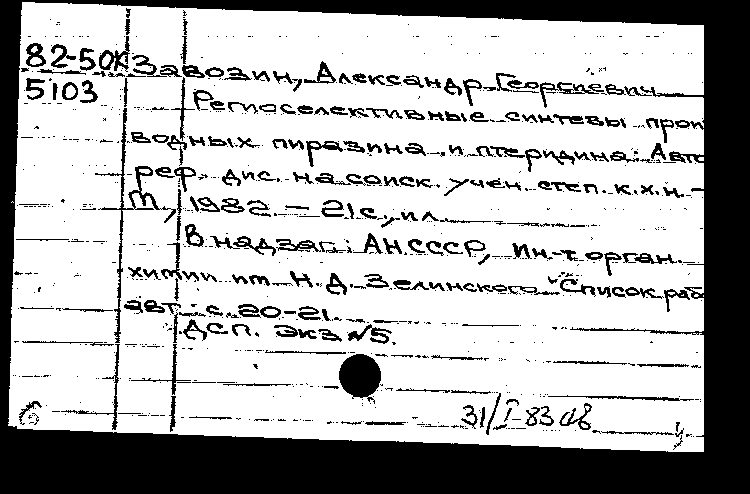 82-50К Завозин, Александр Георгиевич
5103 Региоселективные синтезы произ
водных пиразина и птеридина: Авто
реф. дис. на соиск. учен. степ. к.х.н. –
М., 1982. – 21 с., ил.
В надзаг.: АН СССР, Ин-т орган.
химии им. Н.Д. Зелинского. Список раб
авт.: с. 20-21.
ДСП. Экз №5.
31/I-83